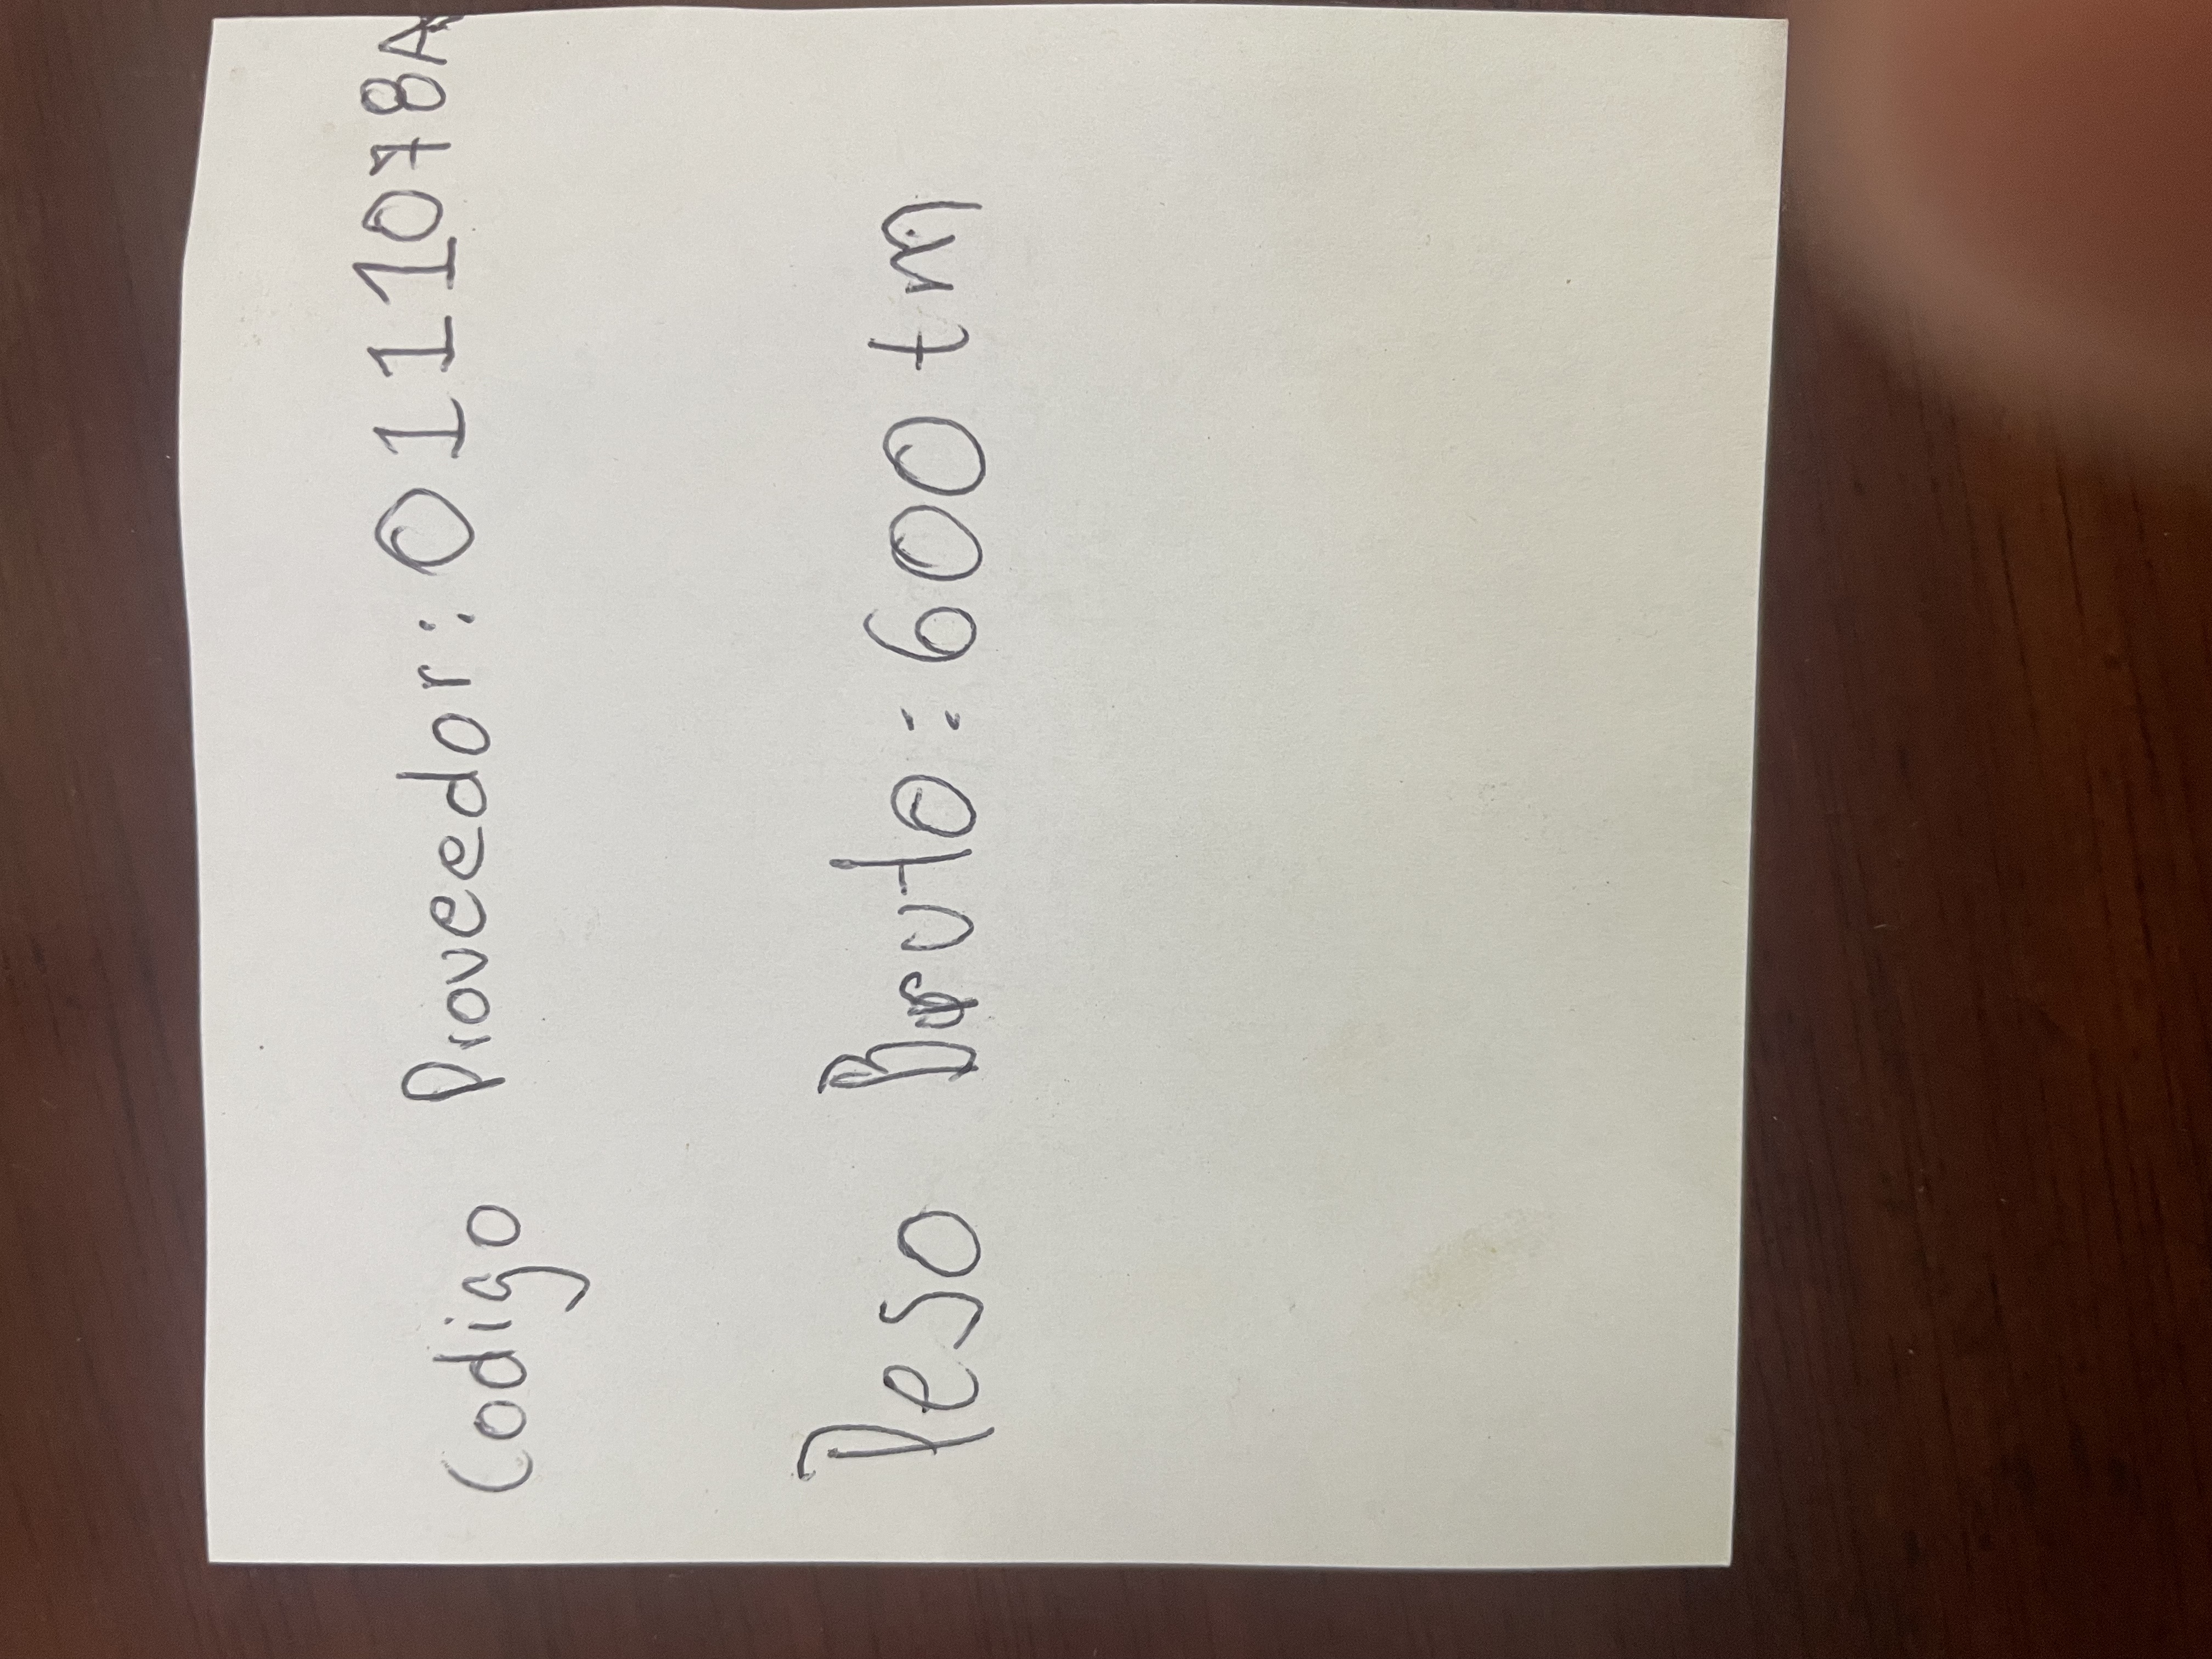 Codigo Proveedor: 0111078A
Peso Bruto: 600 tm